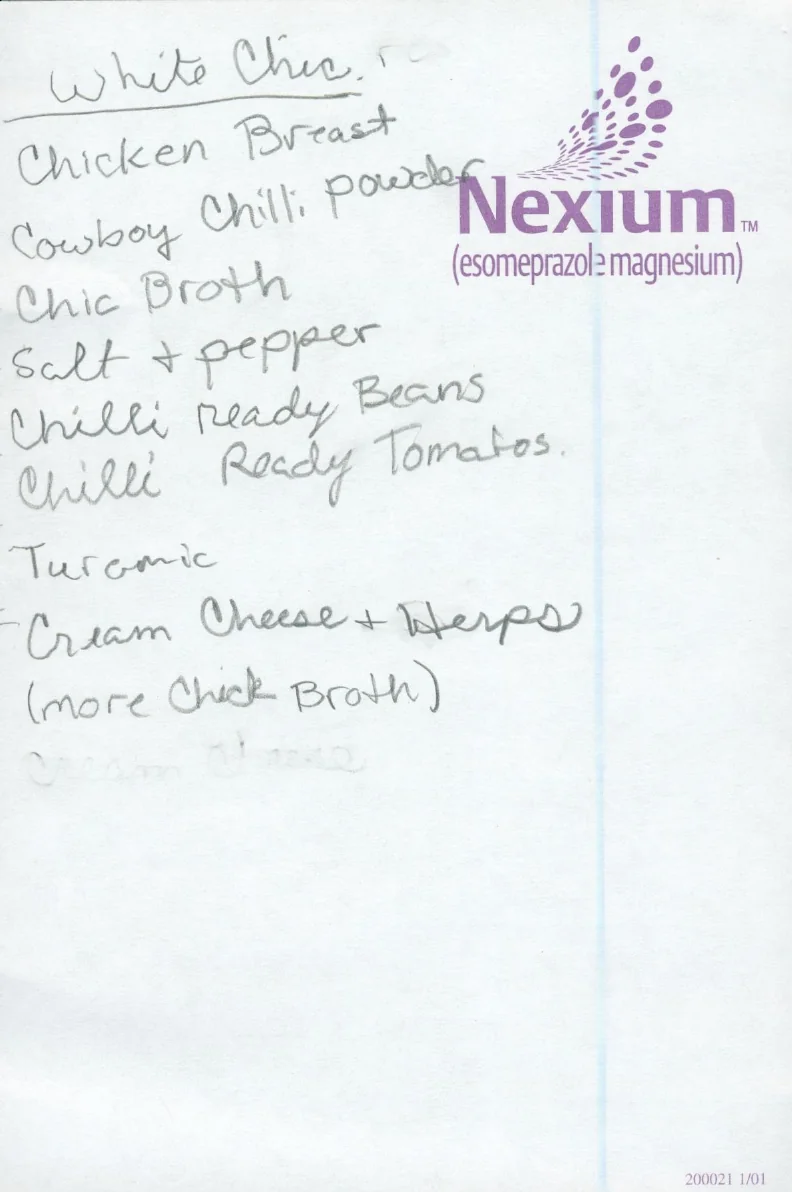 White Chic.
Chicken Breast
Cowboy Chilli powder
Nexium™
(esomeprazole magnesium)
Chic Broth
Salt + pepper
Chilli ready Beans
Chilli Ready Tomatos.
Turamic
Cream Cheese + Herps
(more Chick Broth)
200021 1/01